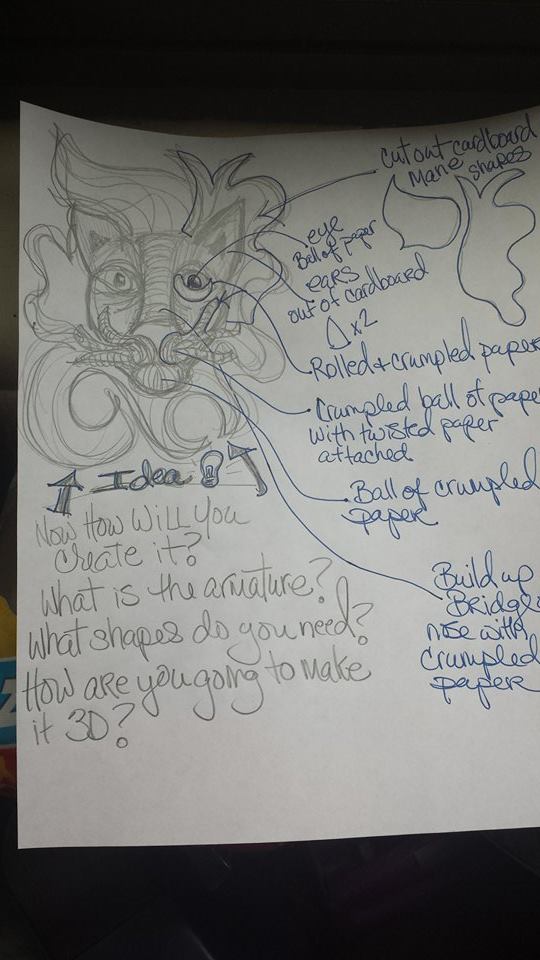 Cut out cardboard
Mane shapes
eye
Ball of paper
ears
out of cardboard
x2
Rolled + crumpled paper
Crumpled ball of pape
with twisted paper
attached
Ball of crumpled
paper
Build up
Bridge
nose with
crumpled
paper
Idea
Now How Will You
create it?
What is the armature?
What shapes do you need?
How are you going to make
it 3D?